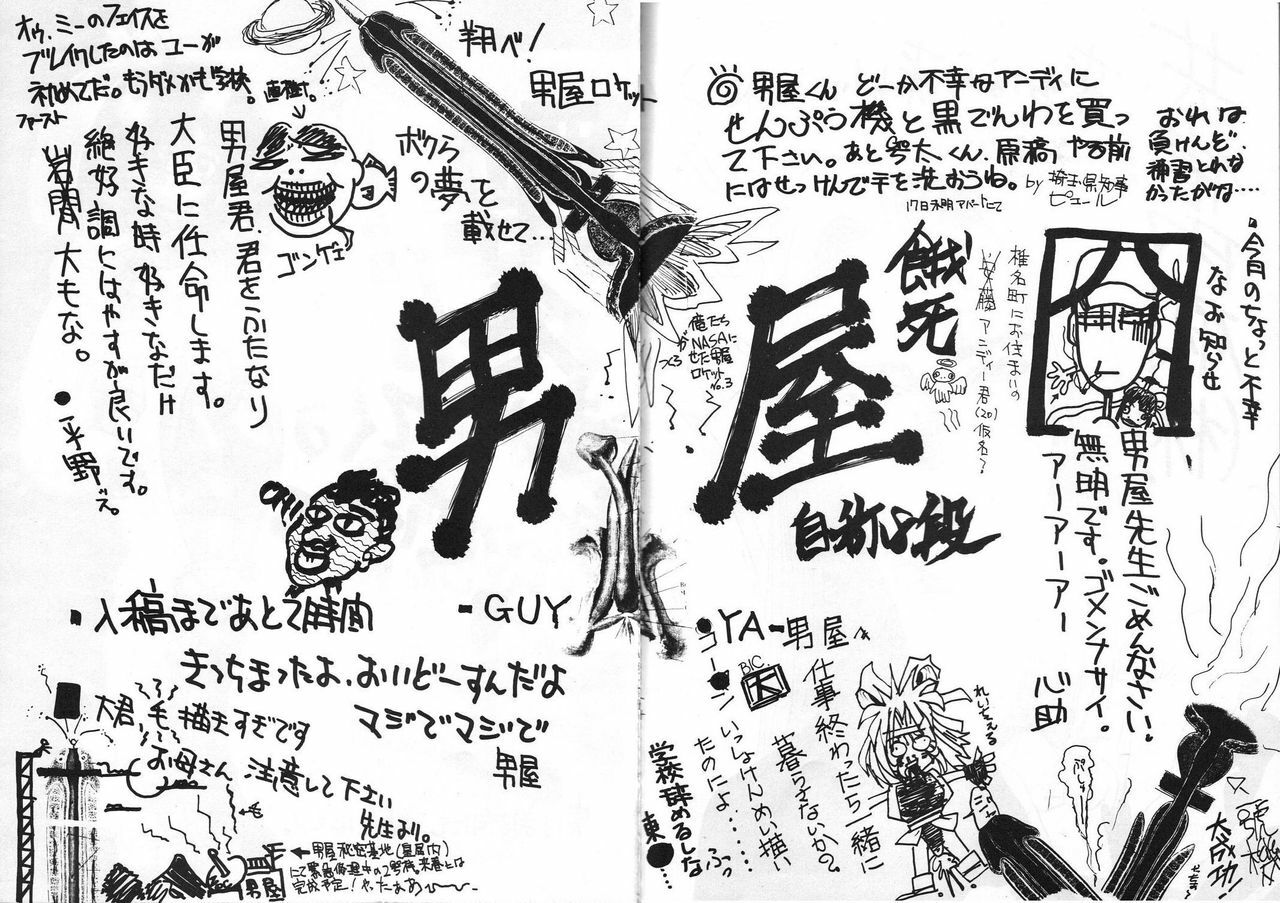 オゥ、ミーのフェイスを
ブレイクしたのはユーが
初めてだ。もうダメかも学校。
ファースト
直樹↑。
男屋君、君をふたなり
大臣に任命します。
好きな時好きなだけ
絶好調にはやすが良いです。
岩間大もな。
●平野
ゴンゲェ
翔べ!
男屋ロケット
ボクらの夢を
載せて…
男屋
俺たち
NASAに
男屋
ロケット
No.3
◎男屋くん どーか不幸なアンディに
せんぷう機と黒でんわを買っ
て下さい。あと 太くん、原稿やる前
にはせっけんで手を洗おうね。
by 埼玉県知事
ピュール
17日未明アパートにて
おれは
負けんど、
練習とれな
かったがな…
餓死
椎名町にお住まいの
安藤アンディー君(20)仮名?
・今月のちょっと不幸
なお知らせ
男屋先生ごめんなさい。
無明です。ゴメンナサイ。
アーアーアアー 心助
自称8段
・入稿まであと2時間
きっちまったよ、おいどーすんだよ
マジでマジで
男屋
-GUY
大君、毛描きすぎです
お母さん 注意して下さい
先生より。
←男屋秘密基地(皇居内)
にて緊急修理中の2号機。来春には
完成予定!やったぁぁ〜
男屋
●YA-男屋
コーマン
BIC
大
仕事終わったら一緒に
暮らさないか?
いっしょけんめい描い
たのによ……ふっ
学校辞めるしな
東●…
れいざえる
ぷしゅー
大成功!!